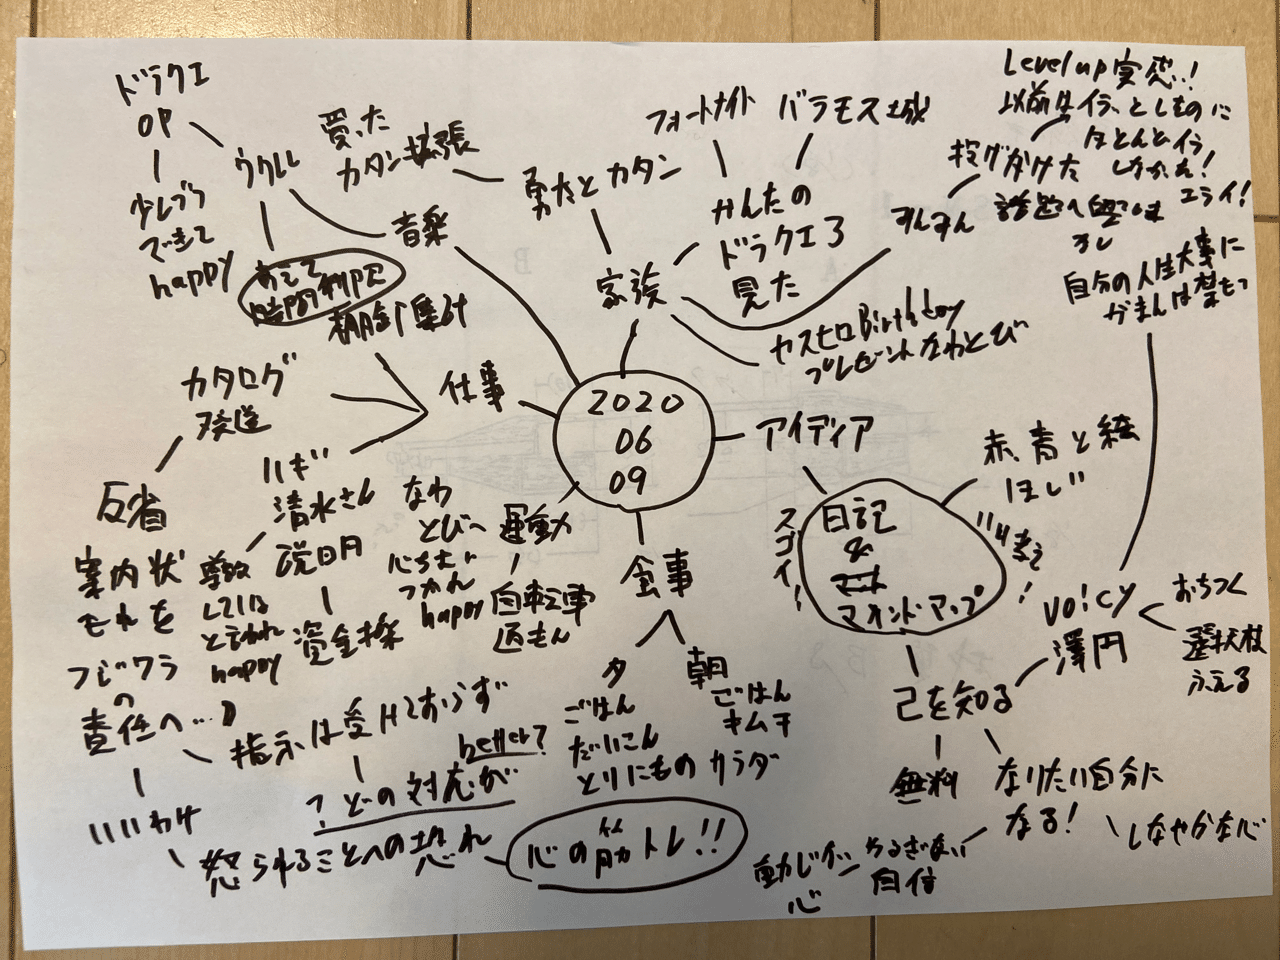 2020
06
09
音楽
ウクレレ
ドラクエ
OP
少しづつ
できて
happy
あえて
時間制限
家族
カタン拡張
とカタン
かんたの
ドラクエ3
見た
フォートナイト
バラモス城
すんすん
投げかけた
Level up 実感!
以前はイラッとしものに
ほとんどイラ
しなかった!
エライ!
自分の人生大事に
がまんは禁もつ
ヤスヒロBirthday
プレゼントなわとび
仕事
棚卸集計
カタログ
発送
反省
案内状
もれを
フジワラ
の
責任へ…
いいわけ
指示は受けておらず
?どの対応が
better?
怒られることへの恐れ
心の筋トレ!!
ハギ
清水さん
説明
資金繰
happy
運動
なわ
とびへ
happy
自転車
食事
夕
ごはん
だいこん
とりにもの
カラダ
朝
ごはん
キムチ
アイディア
日記
&
マインドマップ
スゴイ!
赤、青と緑
ほしい
己を知る
無料
なりたい自分に
なる!
しなやかな心
ゆるぎない
自信
動じない
心
voicy
澤円
おちつく
選択枝
ふえる